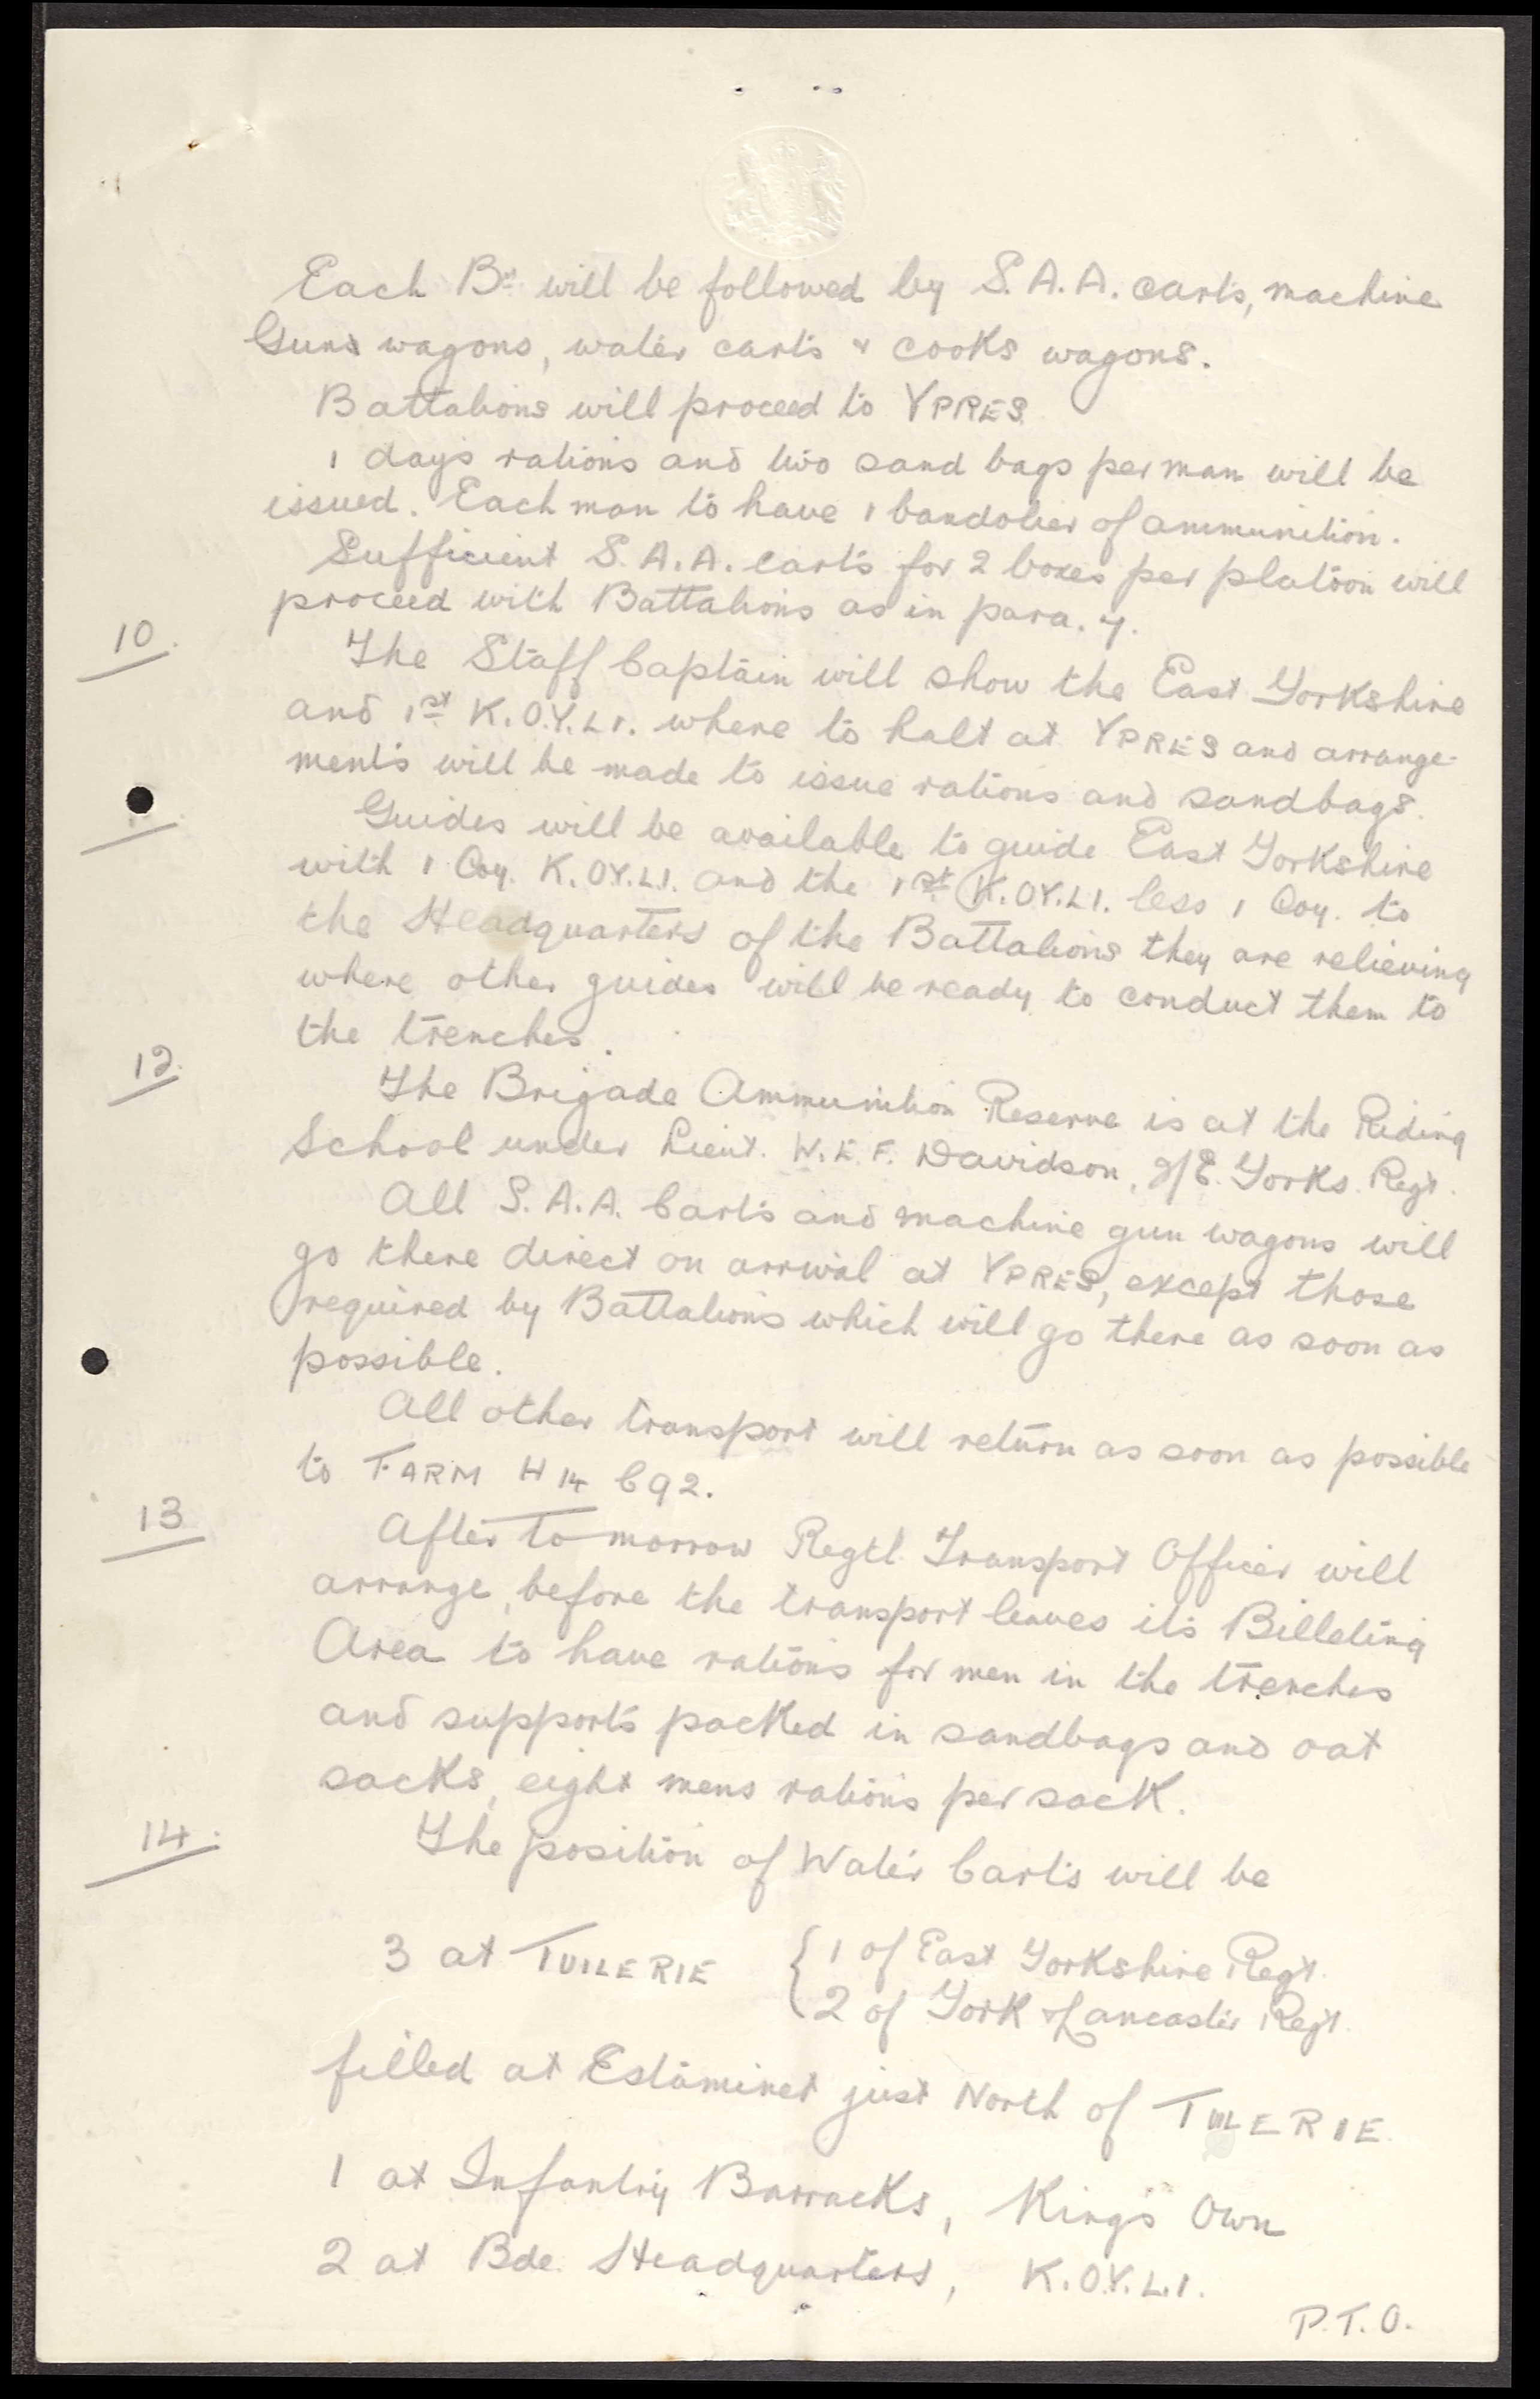 Each Bn will be followed by S.A.A. carts, machine
Guns wagons, water carts & cooks wagons.
Battalions will proceed to YPRES
1 days rations and two sand bags per man will be
issued. Each man to have 1 bandolier of ammunition.
Sufficient S.A.A. carts for 2 boxes per platoon will
proceed with Battalions as in para. 7.
10.
The Staff Captain will show the East Yorkshire
and 1st K.O.Y.L.I. where to halt at YPRES and arrange-
ments will be made to issue rations and sandbags.
Guides will be available to guide East Yorkshire
with 1 Coy. K.O.Y.L.I. and the 1st K.O.Y.L.I. less 1 Coy. to
the Headquarters of the Battalions they are relieving
where other guides will be ready to conduct them to
the trenches.
12.
The Brigade Ammunition Reserve is at the Riding
School under Lieut. W.E.F. Davidson, 2/E. Yorks. Regt.
All S.A.A. Carts and machine gun wagons will
go there direct on arrival at YPRES, except those
required by Battalions which will go there as soon as
possible.
All other transport will return as soon as possible
to FARM H 14 b 9 2.
13
After to-morrow Regtl. Transport Officer will
arrange, before the transport leaves its Billeting
Area to have rations for men in the trenches
and supports packed in sandbags and oat
sacks, eight mens rations per sack.
14.
The position of Water Carts will be
3 at TUILERIE { 1 of East Yorkshire Regt.
2 of York & Lancaster Regt.
filled at Estaminet just North of TUILERIE.
1 at Infantry Barracks, King's Own
2 at Bde. Headquarters, K.O.Y.L.I.
P.T.O.